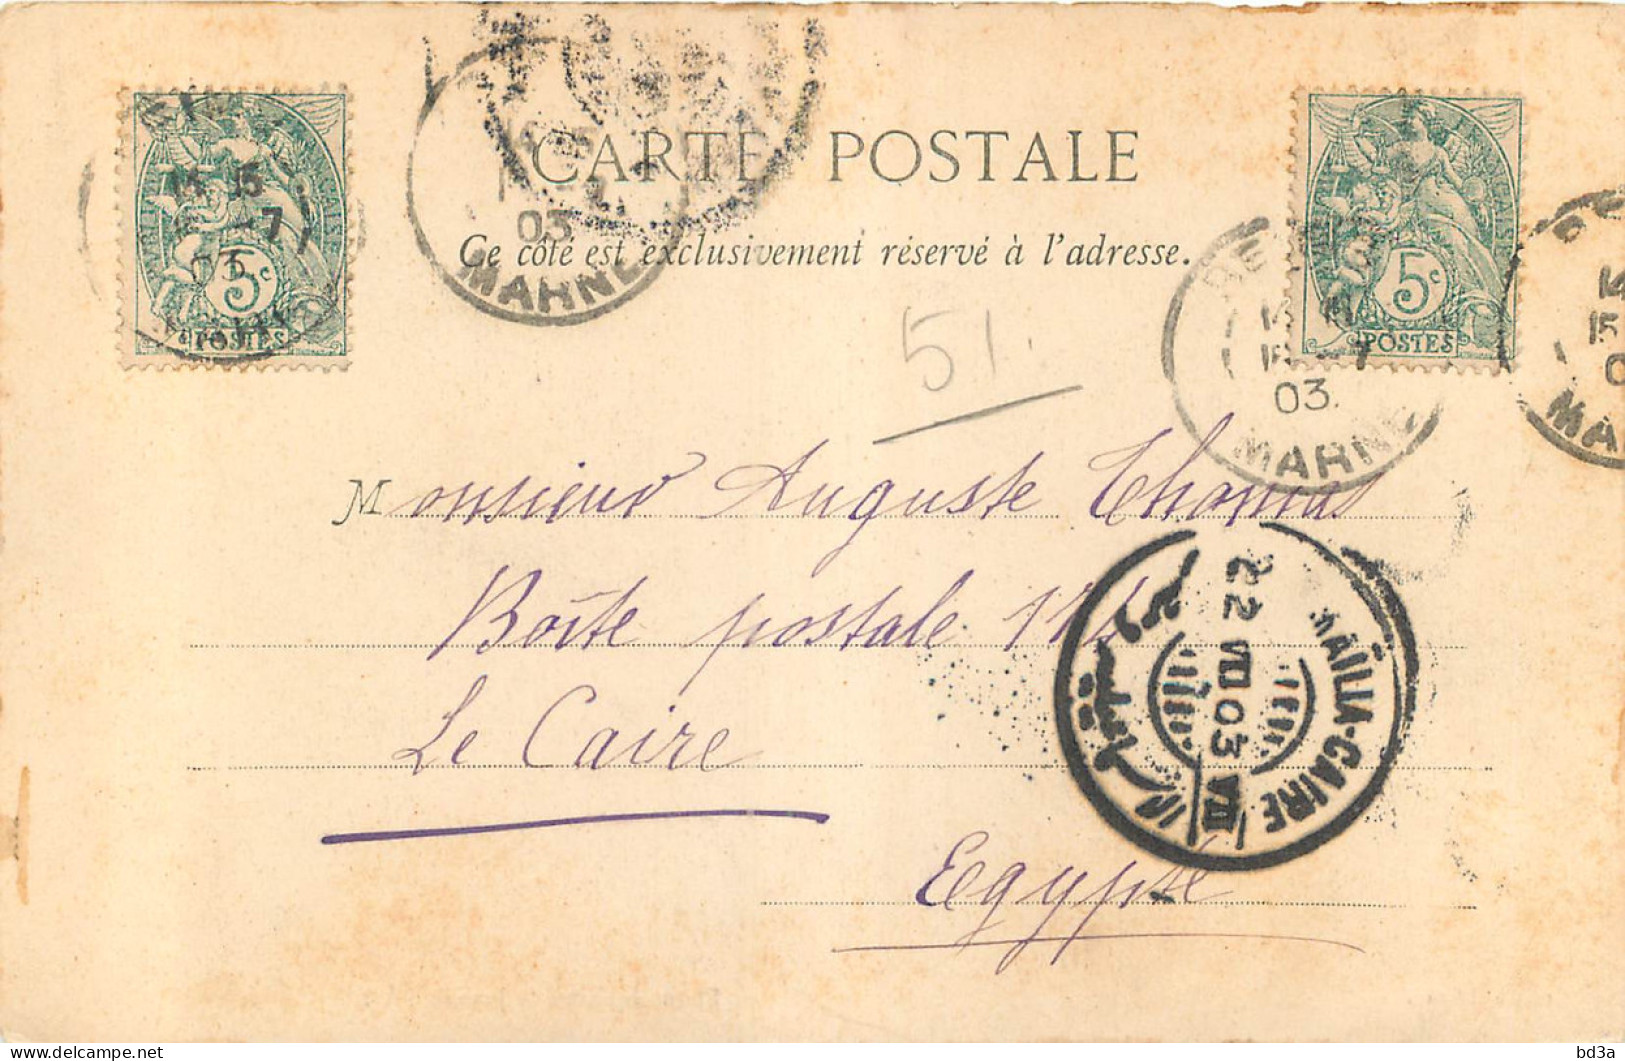 CARTE POSTALE
Ce côté est exclusivement réservé à l'adresse.
5c
POSTES
5c
POSTES
03
MARNE
03.
MARNE
51.
Monsieur Auguste Thomas
Boîte postale
Le Caire
Egypte
22 VII 03 VII
CAIRE
bd3a